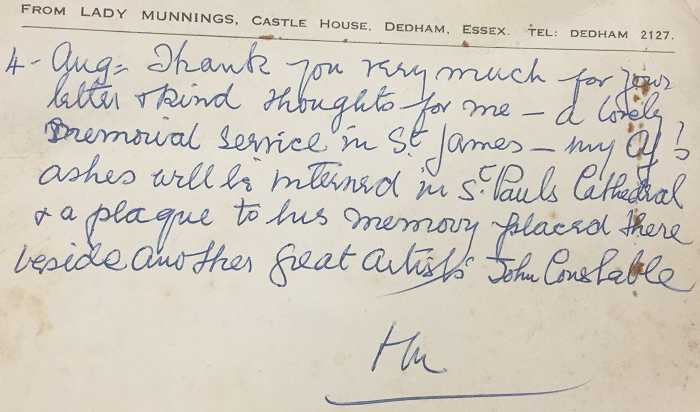 FROM LADY MUNNINGS, CASTLE HOUSE, DEDHAM, ESSEX. TEL: DEDHAM 2127.
4 - Aug = Thank you very much for your
letter & kind thoughts for me - a lovely
memorial service in St James - my AJ's
ashes will be interned in St Pauls Cathedral
& a plaque to his memory placed there
beside another great artist's John Constable